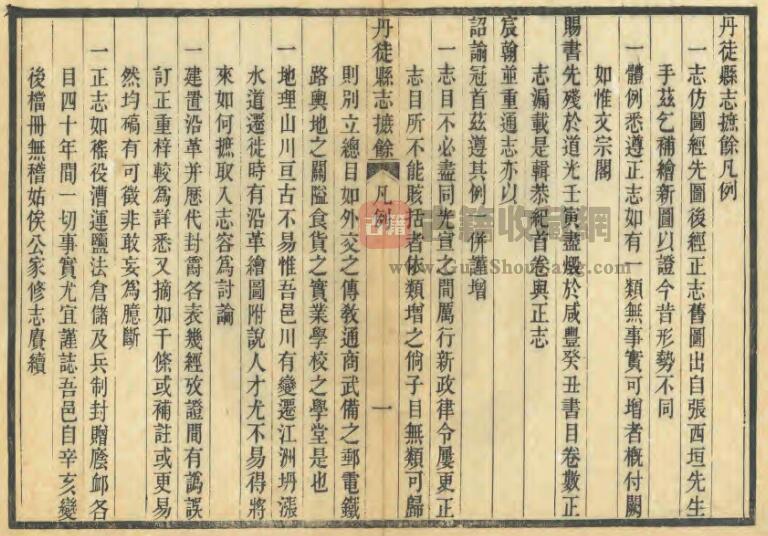 丹徒縣志摭餘凡例
一志仿圖經先圖後經正志舊圖出自張西垣先生
手茲乞補繪新圖以證今昔形勢不同
一體例悉遵正志如有一類無事實可增者概付闕
如惟文宗閣
賜書先殘於道光壬寅盡燬於咸豐癸丑書目卷數正
志漏載是輯恭紀首卷與正志
宸翰並重通志亦以
詔諭冠首茲遵其例合併謹增
一志目不必盡同光宣之間厲行新政律令屢更正
志目所不能賅括者依類增之倘子目無類可歸
丹徒縣志摭餘 凡例 一
則別立總目如外交之傳教通商武備之郵電鐵
路輿地之關隘食貨之實業學校之學堂是也
一地理山川亘古不易惟吾邑川有變遷江洲坍漲
水道遷徙時有沿革繪圖附說人才尤不易得將
來如何摭取入志容爲討論
一建置沿革并歷代封爵各表幾經攷證間有譌誤
訂正重梓較爲詳悉又摘如干條或補註或更易
然均碻有可徵非敢妄爲臆斷
一正志如徭役漕運鹽法倉儲及兵制封贈廕卹各
目四十年間一切事實尤宜謹誌吾邑自辛亥變
後檔冊無稽姑俟公家修志賡續
古籍收藏網
www.GuJiShouCang.com